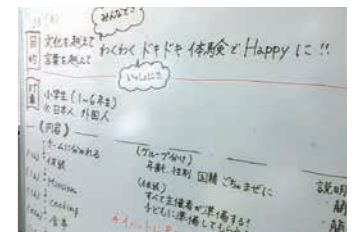 みんなで
目的
文化を越えて
言葉を越えて
わくわく ドキドキ 体験で Happy に!!
いっしょに
対象
小学生(1~6年生)
※日本人、外国人
(内容)
チームに分かれる
Mission
Cooking
(グループ分け)
年齢、性別、国籍 ごちゃまぜに
すべて主催者が準備する!
子どもに準備してもらう
説明